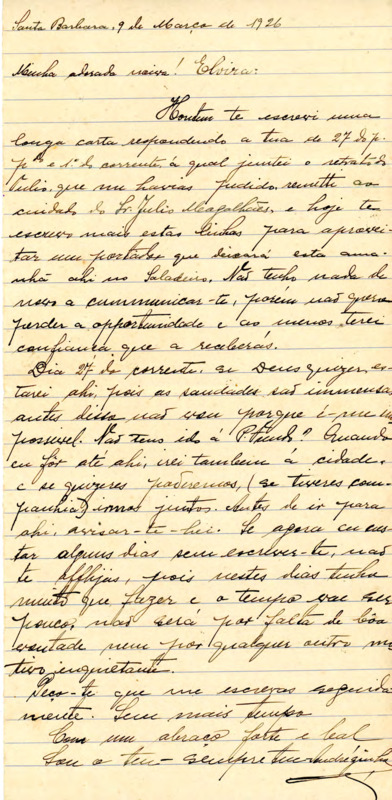 Santa Barbara, 9 de Março de 1926
Minha adorada noiva! Elvira:
Hontem te escrevi uma
longa carta respondendo a tua de 27 do p.
pº e 1º do corrente, á qual juntei o retrato do
Julio, que me havias pedido, remetti ao
cuidado do Sr. Julio Magalhães, e hoje te
escrevo mais estas linhas para aprovei-
tar um portador que deixará esta ama-
nhã ahi no Saladeiro. Não tenho nada de
novo a communicar-te, porem não quero
perder a opportunidade e ao menos terei
confiança que a receberás.
Dia 27 do corrente, si Deus quizer, es-
tarei ahi, pois as saudades são immensas
antes disso não vou porque é-me im
possivel. Não tens ido á P. Quando
eu fôr até ahi, irei tambem á cidade,
e se quizeres poderemos, (se tiveres com-
panhia) irmos juntos. Antes de ir para
ahi, avisar-te-hei. Se agora eu es-
tar alguns dias sem escrever-te, não
te afflijas, pois nestes dias tenho
muito que fazer e o tempo vae ser
pouco, não será por falta de bôa
vontade nem por qualquer outro mo
tivo inquietante.
Peço-te que me escrevas seguida
mente. Sem mais tempo
Com um abraço forte e leal
Sou o teu - sempre teu Andréginho